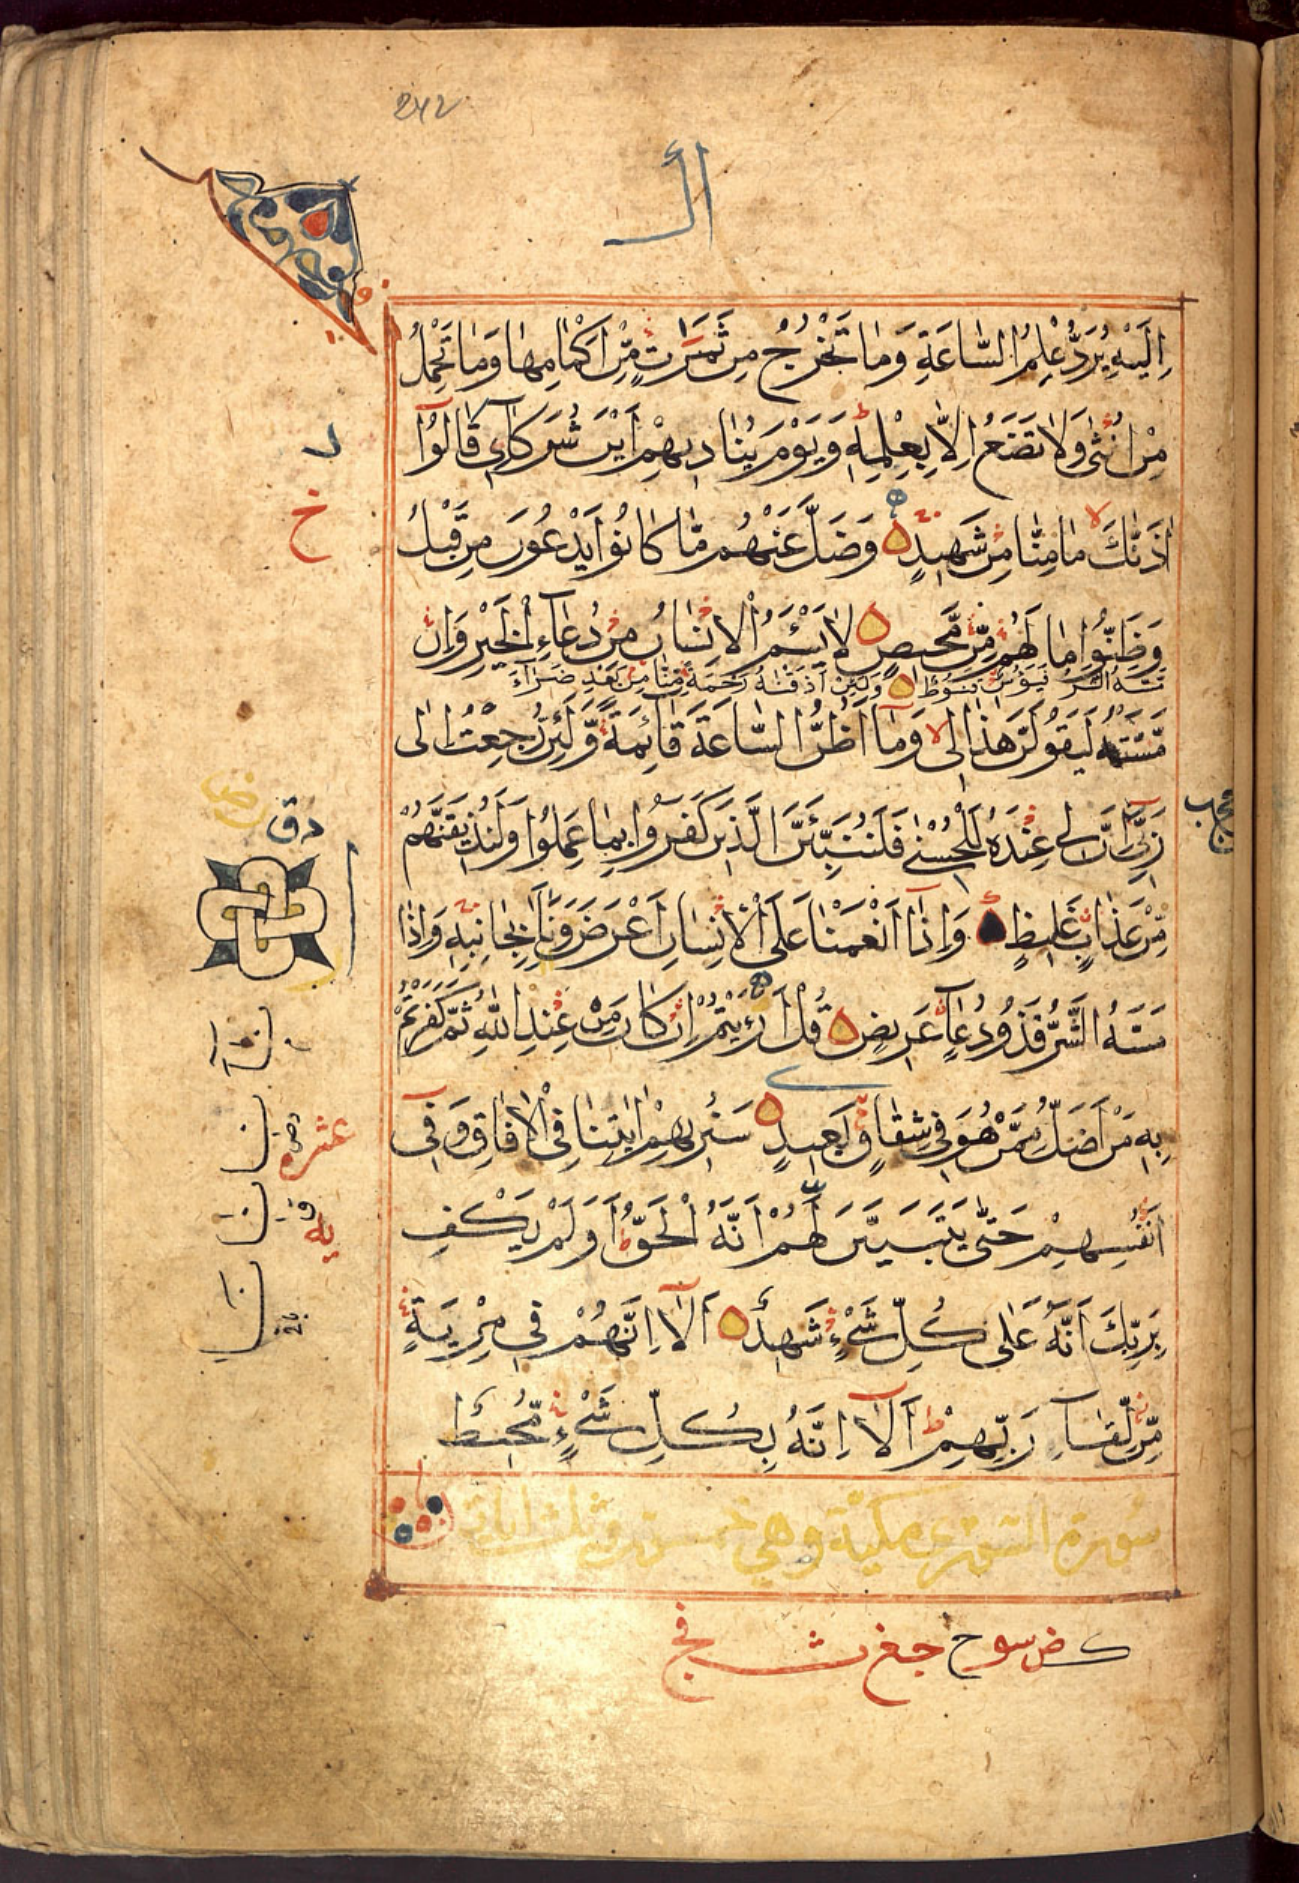 242
ال
اِلَيْهِ يُرَدُّ عِلْمُ السَّاعَةِ وَمَا تَخْرُجُ مِنْ ثَمَرٰتٍ مِّنْ اَكْمَامِهَا وَمَا تَحْمِلُ
مِنْ اُنْثٰى وَلَا تَضَعُ اِلَّا بِعِلْمِهٖ وَيَوْمَ يُنَادِيهِمْ اَيْنَ شُرَكَآئِي قَالُوٓا
اٰذَنّٰكَ مَا مِنَّا مِنْ شَهِيدٍ وَضَلَّ عَنْهُمْ مَّا كَانُوا يَدْعُونَ مِنْ قَبْلُ
وَظَنُّوا مَا لَهُمْ مِّنْ مَّحِيصٍ لَا يَسْـَٔمُ الْاِنْسَانُ مِنْ دُعَآءِ الْخَيْرِ وَاِنْ
مَّسَّهُ الشَّرُّ فَيَـُٔوسٌ قَنُوطٌ وَلَئِنْ اَذَقْنٰهُ رَحْمَةً مِّنَّا مِنْ بَعْدِ ضَرَّآءَ
مَسَّتْهُ لَيَقُولَنَّ هٰذَا لِى وَمَآ اَظُنُّ السَّاعَةَ قَآئِمَةً وَّلَئِنْ رُّجِعْتُ اِلٰى
رَبِّىٓ اِنَّ لِى عِنْدَهٗ لَلْحُسْنٰى فَلَنُنَبِّئَنَّ الَّذِينَ كَفَرُوا بِمَا عَمِلُوا وَلَنُذِيقَنَّهُمْ
مِّنْ عَذَابٍ غَلِيظٍ وَاِذَآ اَنْعَمْنَا عَلَى الْاِنْسَانِ اَعْرَضَ وَنَاٰ بِجَانِبِهٖ وَاِذَا
مَسَّهُ الشَّرُّ فَذُو دُعَآءٍ عَرِيضٍ قُلْ اَرَءَيْتُمْ اِنْ كَانَ مِنْ عِنْدِ اللّٰهِ ثُمَّ كَفَرْتُمْ
بِهٖ مَنْ اَضَلُّ مِمَّنْ هُوَ فِى شِقَاقٍ بَعِيدٍ سَنُرِيهِمْ اٰيٰتِنَا فِى الْاٰفَاقِ وَفِىٓ
اَنْفُسِهِمْ حَتّٰى يَتَبَيَّنَ لَهُمْ اَنَّهُ الْحَقُّ اَوَلَمْ يَكْفِ
بِرَبِّكَ اَنَّهٗ عَلٰى كُلِّ شَىْءٍ شَهِيدٌ اَلَآ اِنَّهُمْ فِى مِرْيَةٍ
مِّنْ لِّقَآءِ رَبِّهِمْ اَلَآ اِنَّهٗ بِكُلِّ شَىْءٍ مُّحِيطٌ
سورة الشورى مكية وهي خمسون وثلث ايات